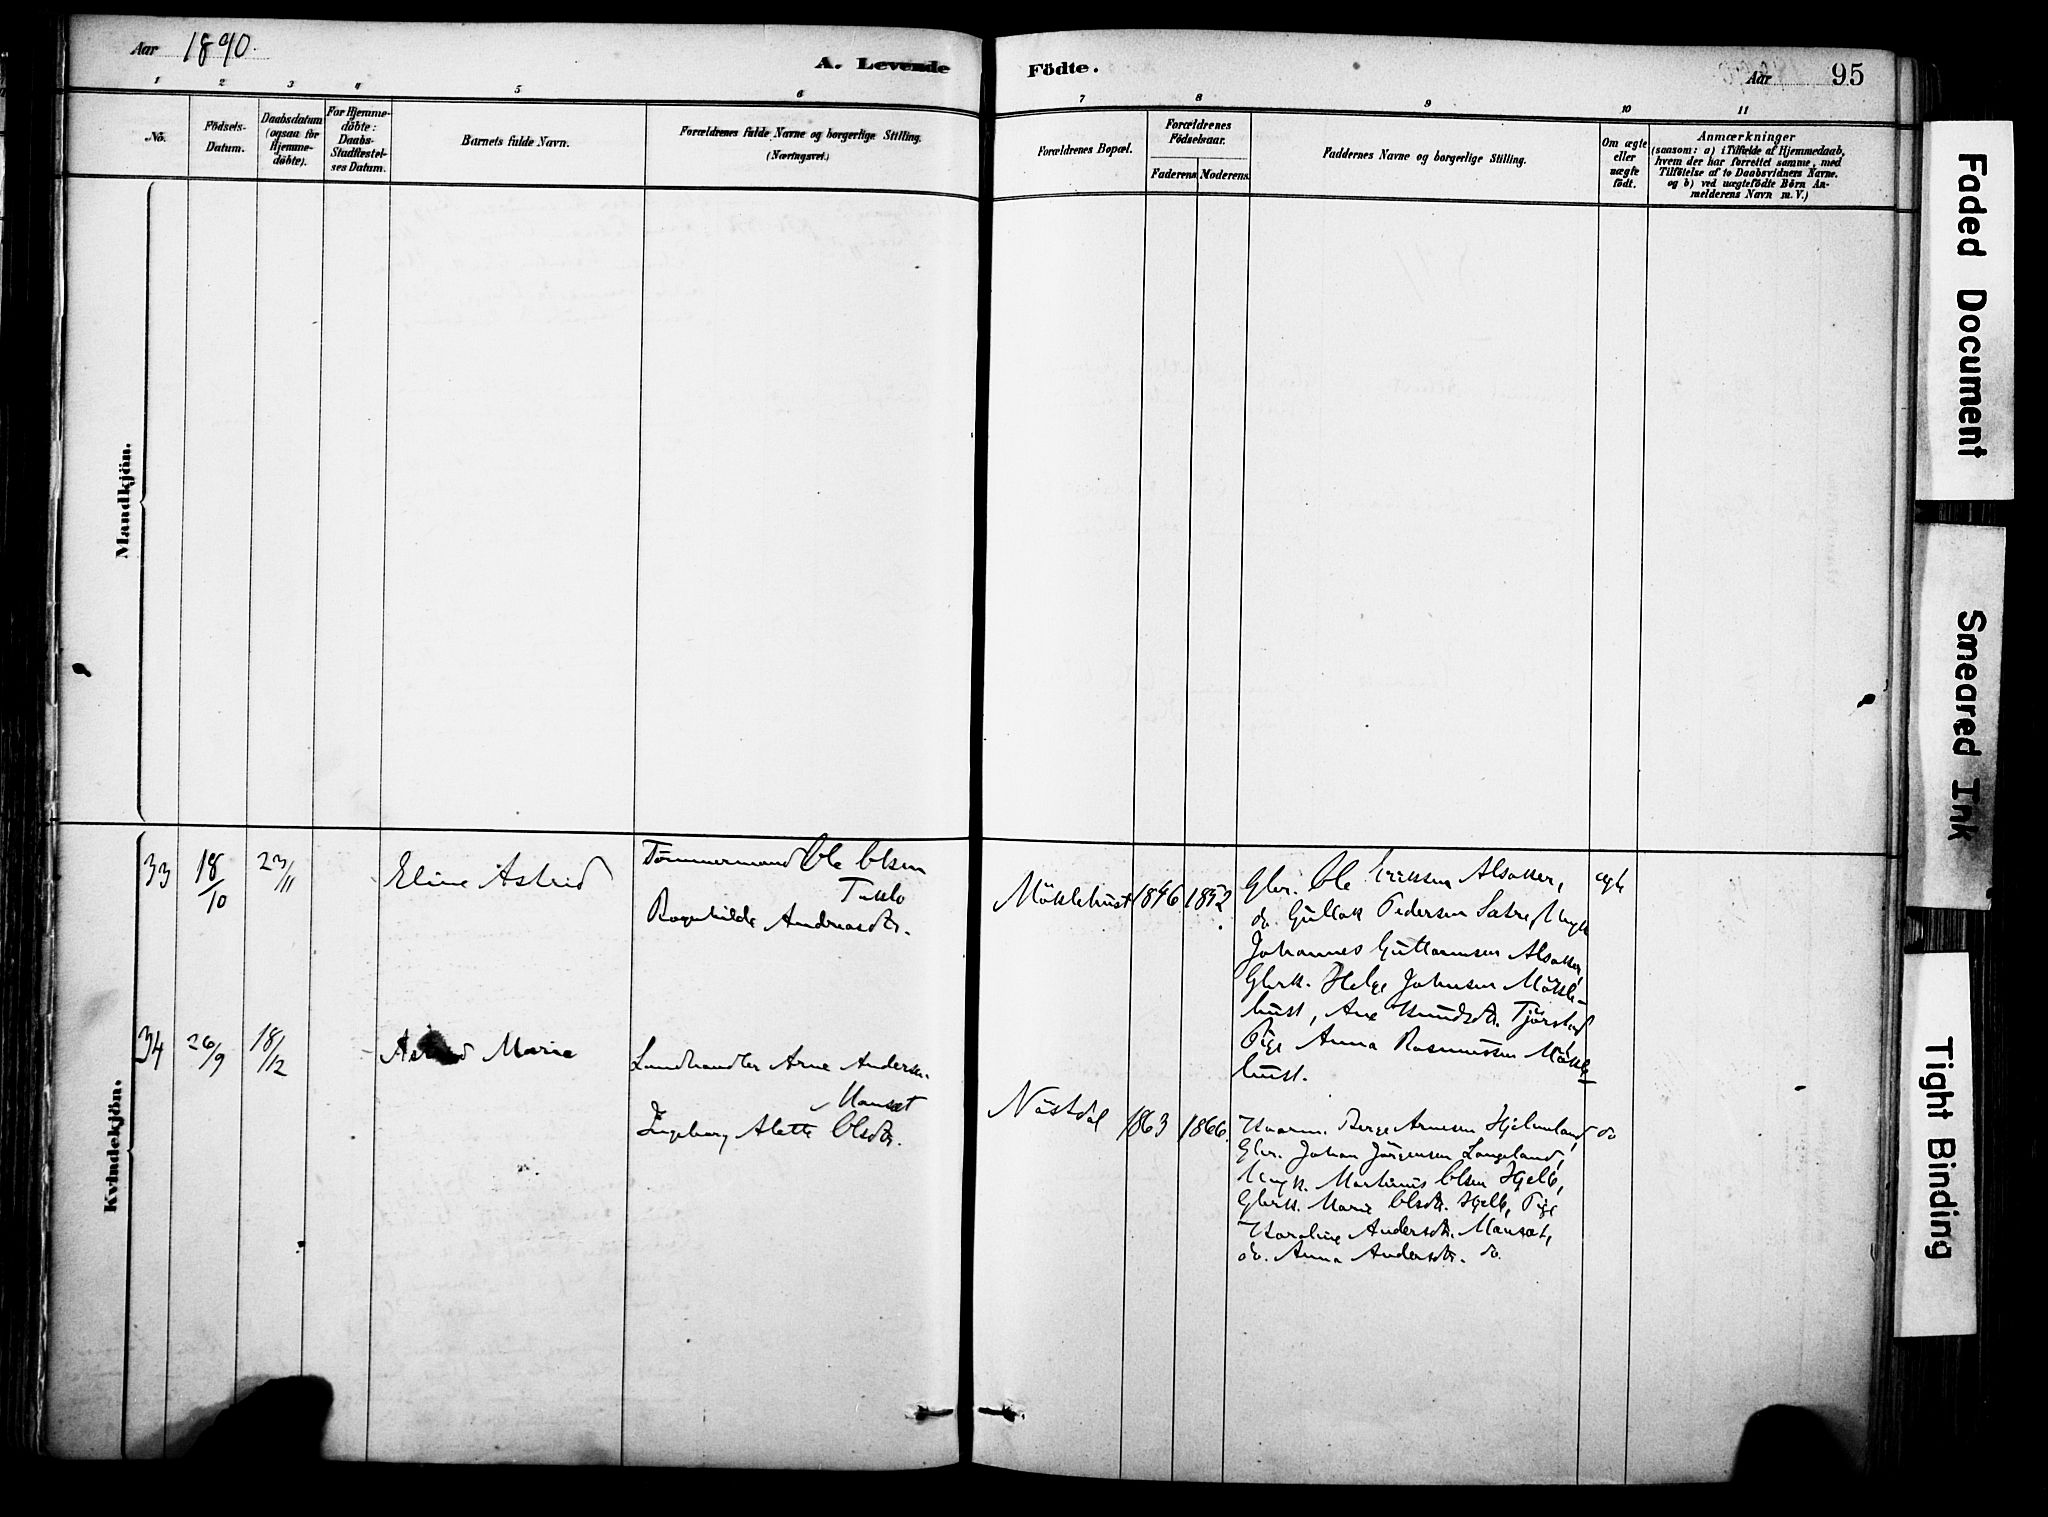 Aar 1890.
A. Levende Födte.
Aar 95
1 2 3 4 5 6 7 8 9 10 11
No.
Födsels-
Datum.
Daabsdatum
(ogsaa for
Hjemme-
döbte).
For Hjemme-
döbte:
Daabs-
Stadfæstel-
ses Datum.
Barnets fulde Navn.
Forældrenes fulde Navne og borgerlige Stilling.
(Næringsvei.)
Forældrenes Bopæl.
Forældrenes
Födselsaar.
Faderens. Moderens.
Faddernes Navne og borgerlige Stilling.
Om ægte
eller
uægte
födt.
Anmærkninger
(saasom: a) i Tilfælde af Hjemmedaab,
hvem der har forrettet samme, med
Tilföielse af to Daabsvidners Navne.
og b) ved uægtefödte Börn An-
melderens Navn m. V.)
Mandkjön.
Kvindekjön.
33 18/10 23/11
Eline Astrid
Tömmermand Ole Olsen
Taklo
Ragnhilde Andreasdtr.
Möklehust 1846 1852.
Gbr. Ole Eriksen Alsaker,
do. Gullak Pedersen Sætre,
Johannes Guttormsen Alsaker,
Gbrk. Helge Johnsen Mökle-
hust, Ane Knudsdtr. Tjörstad
Pige Anna Rasmussen Mökle-
hust.
34 26/9 18/12
Astrid Marie
Landhandler Arne Andersen
Mansæt
Ingeborg Alette Olsdtr.
Nöstdal 1863 1866.
Berge Arnesen Hjelmeland do
Gbr. Johan Jörgensen Langeland,
Ungk. Martinus Olsen Hjelle,
Gbrk. Marie Olsdtr. Hjelle, Pige
Karoline Andersdtr. Mansæt,
do. Anna Andersdtr. do.
Faded Document
Smeared Ink
Tight Binding